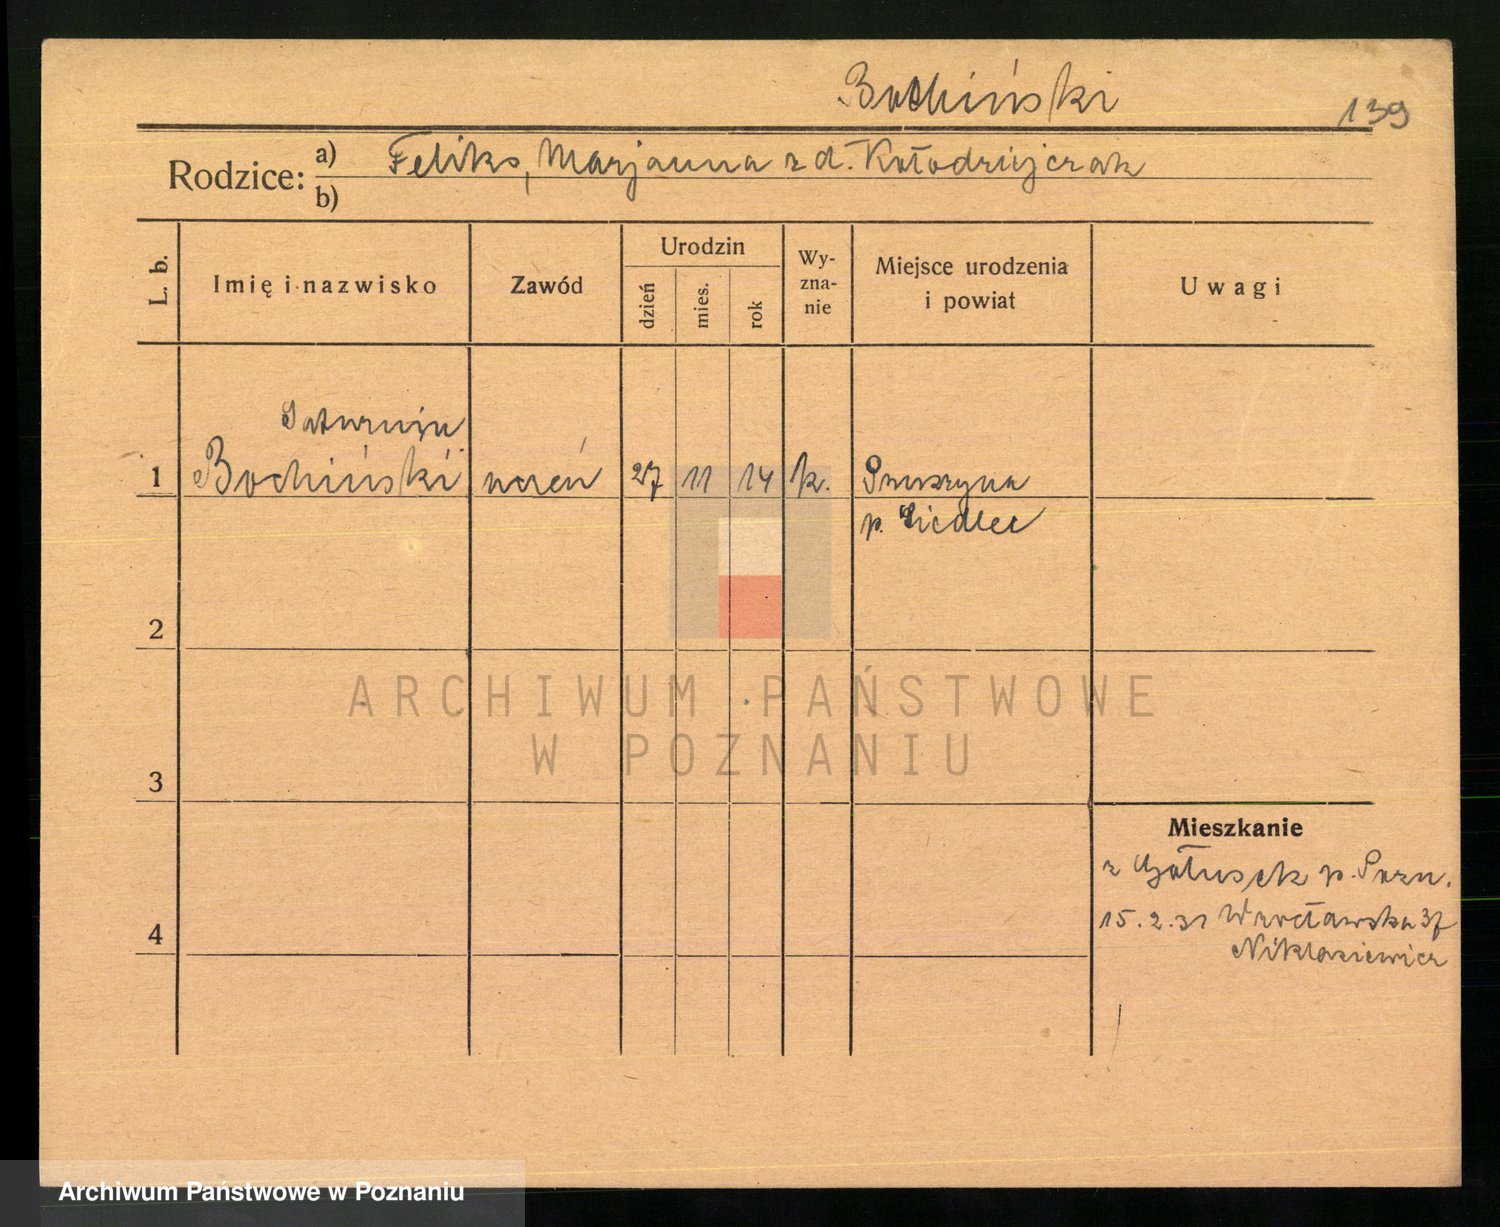 Bochiński
139
Rodzice: a) Feliks, Marjanna z d. Kołodziejczak
b)
L. b.
Imię i nazwisko
Zawód
Urodzin
dzień
mies.
rok
Wy-
zna-
nie
Miejsce urodzenia
i powiat
Uwagi
Saturnin
1 Bochiński uczeń 27 11 14 k. Pruszyna
p. Siedlec
2
ARCHIWUM PAŃSTWOWE
W POZNANIU
3
Mieszkanie
z Gołusek p. Pozn.
4 15.2.31 Wrocławska 37
Niklasiewicz
Archiwum Państwowe w Poznaniu